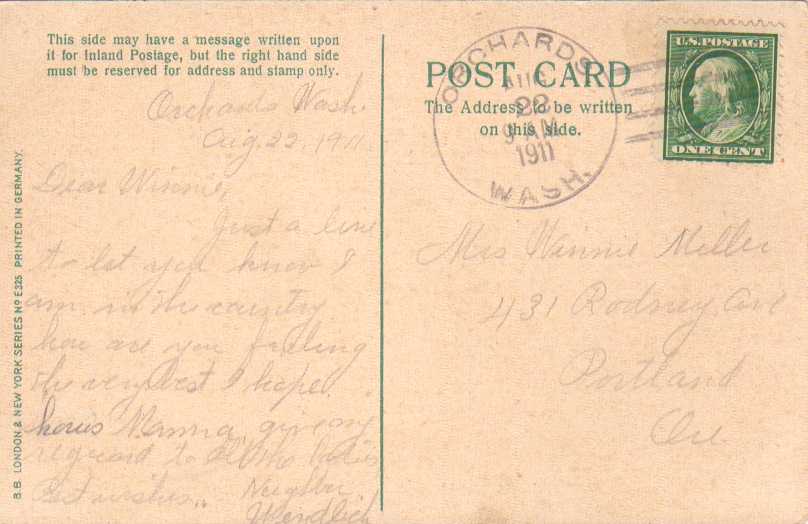 This side may have a message written upon
it for Inland Postage, but the right hand side
must be reserved for address and stamp only.
Orchards Wash.
Aug. 22, 1911
Dear Winnie,
Just a line
to let you know I
am in the country
how are you feeling
the very best I hope.
hows Mamma, give my
regards to all the
Best wishes,, Neighbor
B.B. LONDON & NEW YORK SERIES No E325 PRINTED IN GERMANY.
POST CARD
The Address to be written
on this side.
ORCHARDS
AUG
22
9 AM
1911
WASH.
U.S. POSTAGE
ONE CENT
Mrs Winnie Miller
431 Rodney Ave
Portland
Ore